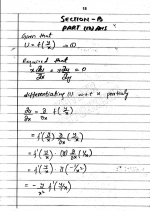 SECTION-B
Given that
U = f(y/x) → (1)
Required that
x ∂u/∂x + y ∂u/∂y = 0
differentiating (1) w.r.t x partially
∂u/∂x = ∂/∂x f(y/x)
= f'(y/x) ∂/∂x (y/x)
= f'(y/x) · (y) ∂/∂x (1/x)
= f'(y/x) · y (-1/x²)
= - y/x² f'(y/x)